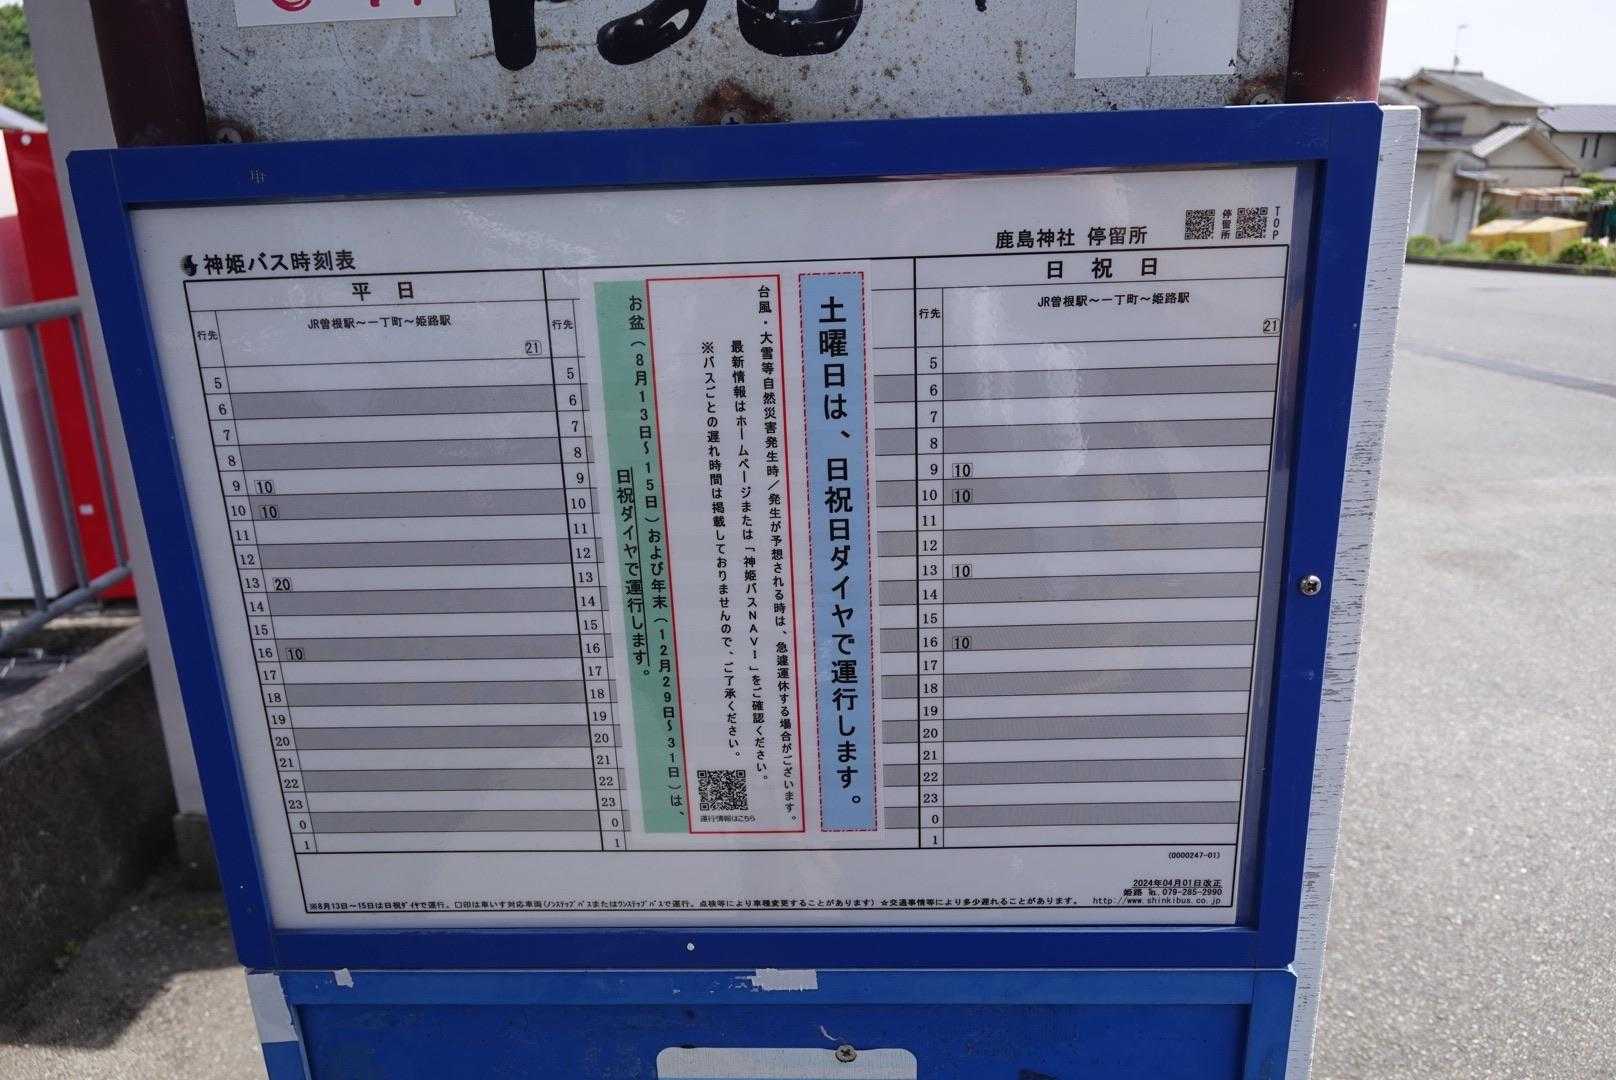 鹿島神社 停留所
停留所
TOP
神姫バス時刻表
平日
行先
JR曽根駅～一丁町～姫路駅
21
5
6
7
8
9 10
10 10
11
12
13 20
14
15
16 10
17
18
19
20
21
22
23
0
1
行先
5
6
7
8
9
10
11
12
13
14
15
16
17
18
19
20
21
22
23
0
1
土曜日は、日祝日ダイヤで運行します。
台風・大雪等自然災害発生時/発生が予想される時は、急遽運休する場合がございます。
最新情報はホームページまたは「神姫バスNAVI」をご確認ください。
※バスごとの遅れ時間は掲載しておりませんので、ご了承ください。
運行情報はこちら
お盆(8月13日～15日)および年末(12月29日～31日)は、
日祝ダイヤで運行します。
日祝日
行先
JR曽根駅～一丁町～姫路駅
21
5
6
7
8
9 10
10 10
11
12
13 10
14
15
16 10
17
18
19
20
21
22
23
0
1
(0000247-01)
2024年04月01日改正
姫路 ℡.079-285-2990
※8月13日～15日は日祝ダイヤで運行。□印は車いす対応車両(ノンステップバスまたはワンステップバスで運行。点検等により車種変更することがあります) ☆交通事情等により多少遅れることがあります。 http://www.shinkibus.co.jp